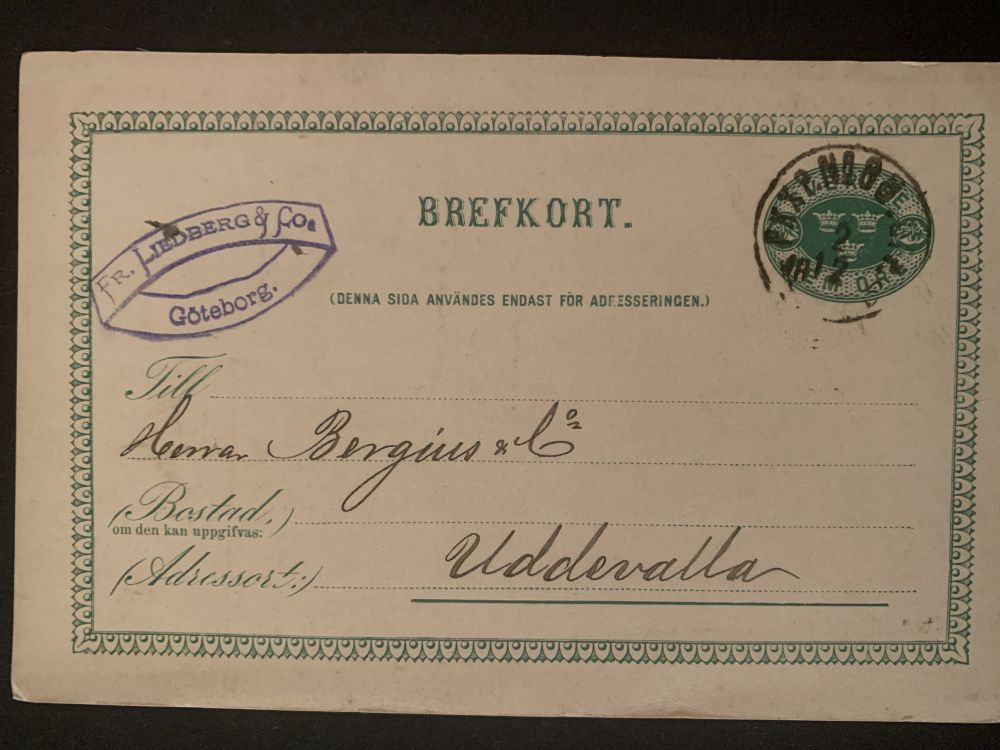 BREFKORT.
FR. LIEDBERG & CO.
Göteborg.
(DENNA SIDA ANVÄNDES ENDAST FÖR ADRESSERINGEN.)
Till
Herrar Bergius & Co
(Bostad,)
om den kan uppgifvas:
(Adressort:)
Uddevalla